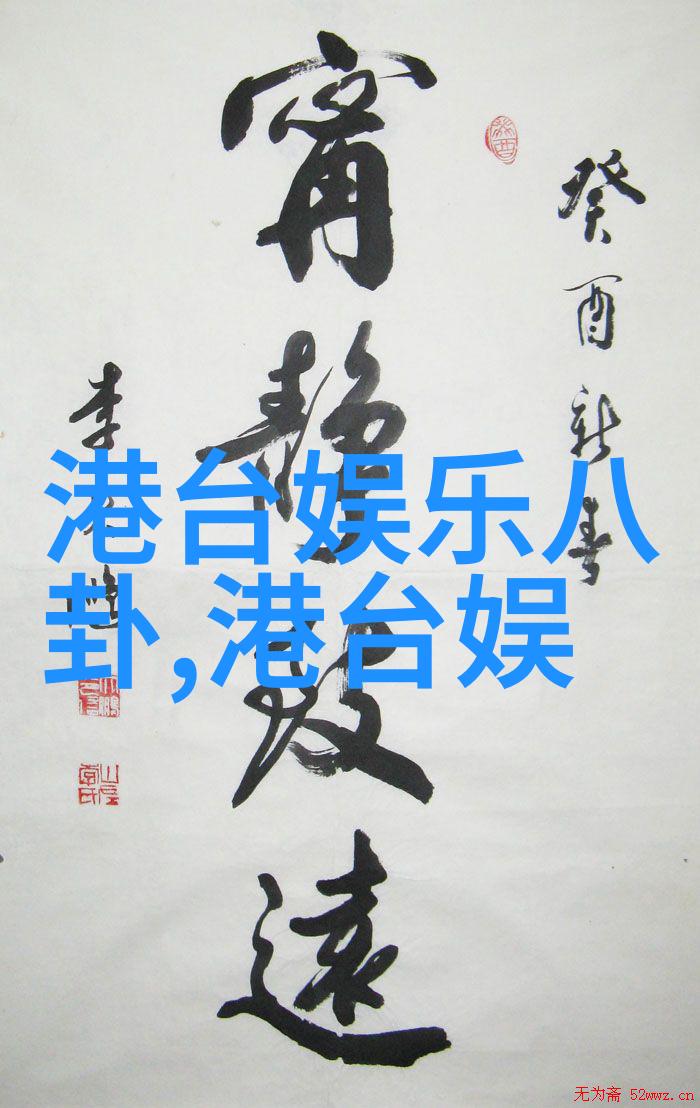 癸酉新春
甯靜致遠
李
港台娱乐八
卦,港台娱
无为斋 52wwz.cn